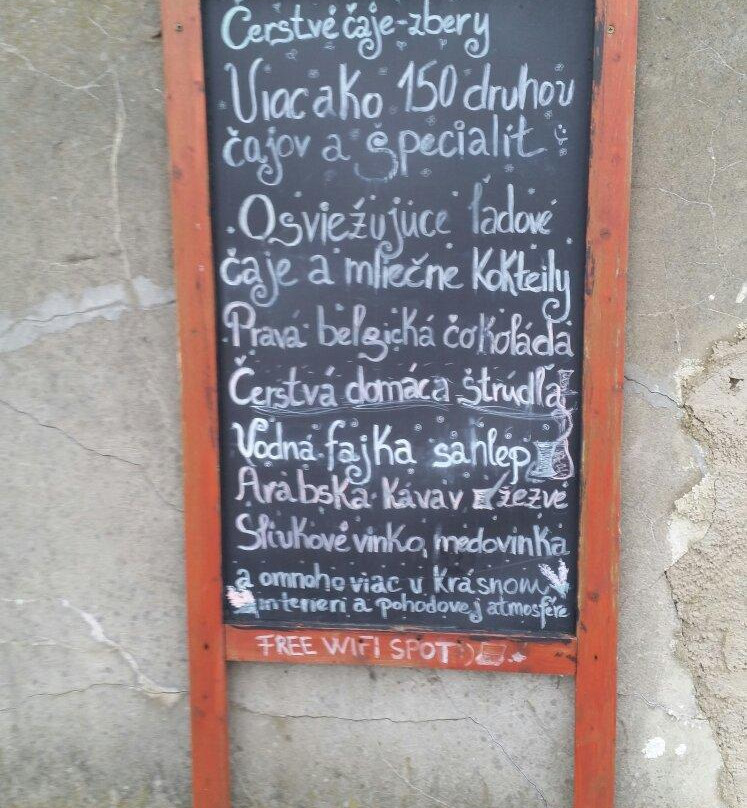 Čerstvé čaje-zbery
Viac ako 150 druhov
čajov a špecialít
Osviežujúce ľadové
čaje a mliečne kokteily
Pravá belgická čokoláda
Čerstvá domáca štrúdľa
Vodná fajka sahlep
Arabská káva v džezve
Slivkové vínko, medovinka
a omnoho viac v krásnom
interieri a pohodovej atmosfére
FREE WIFI SPOT :)